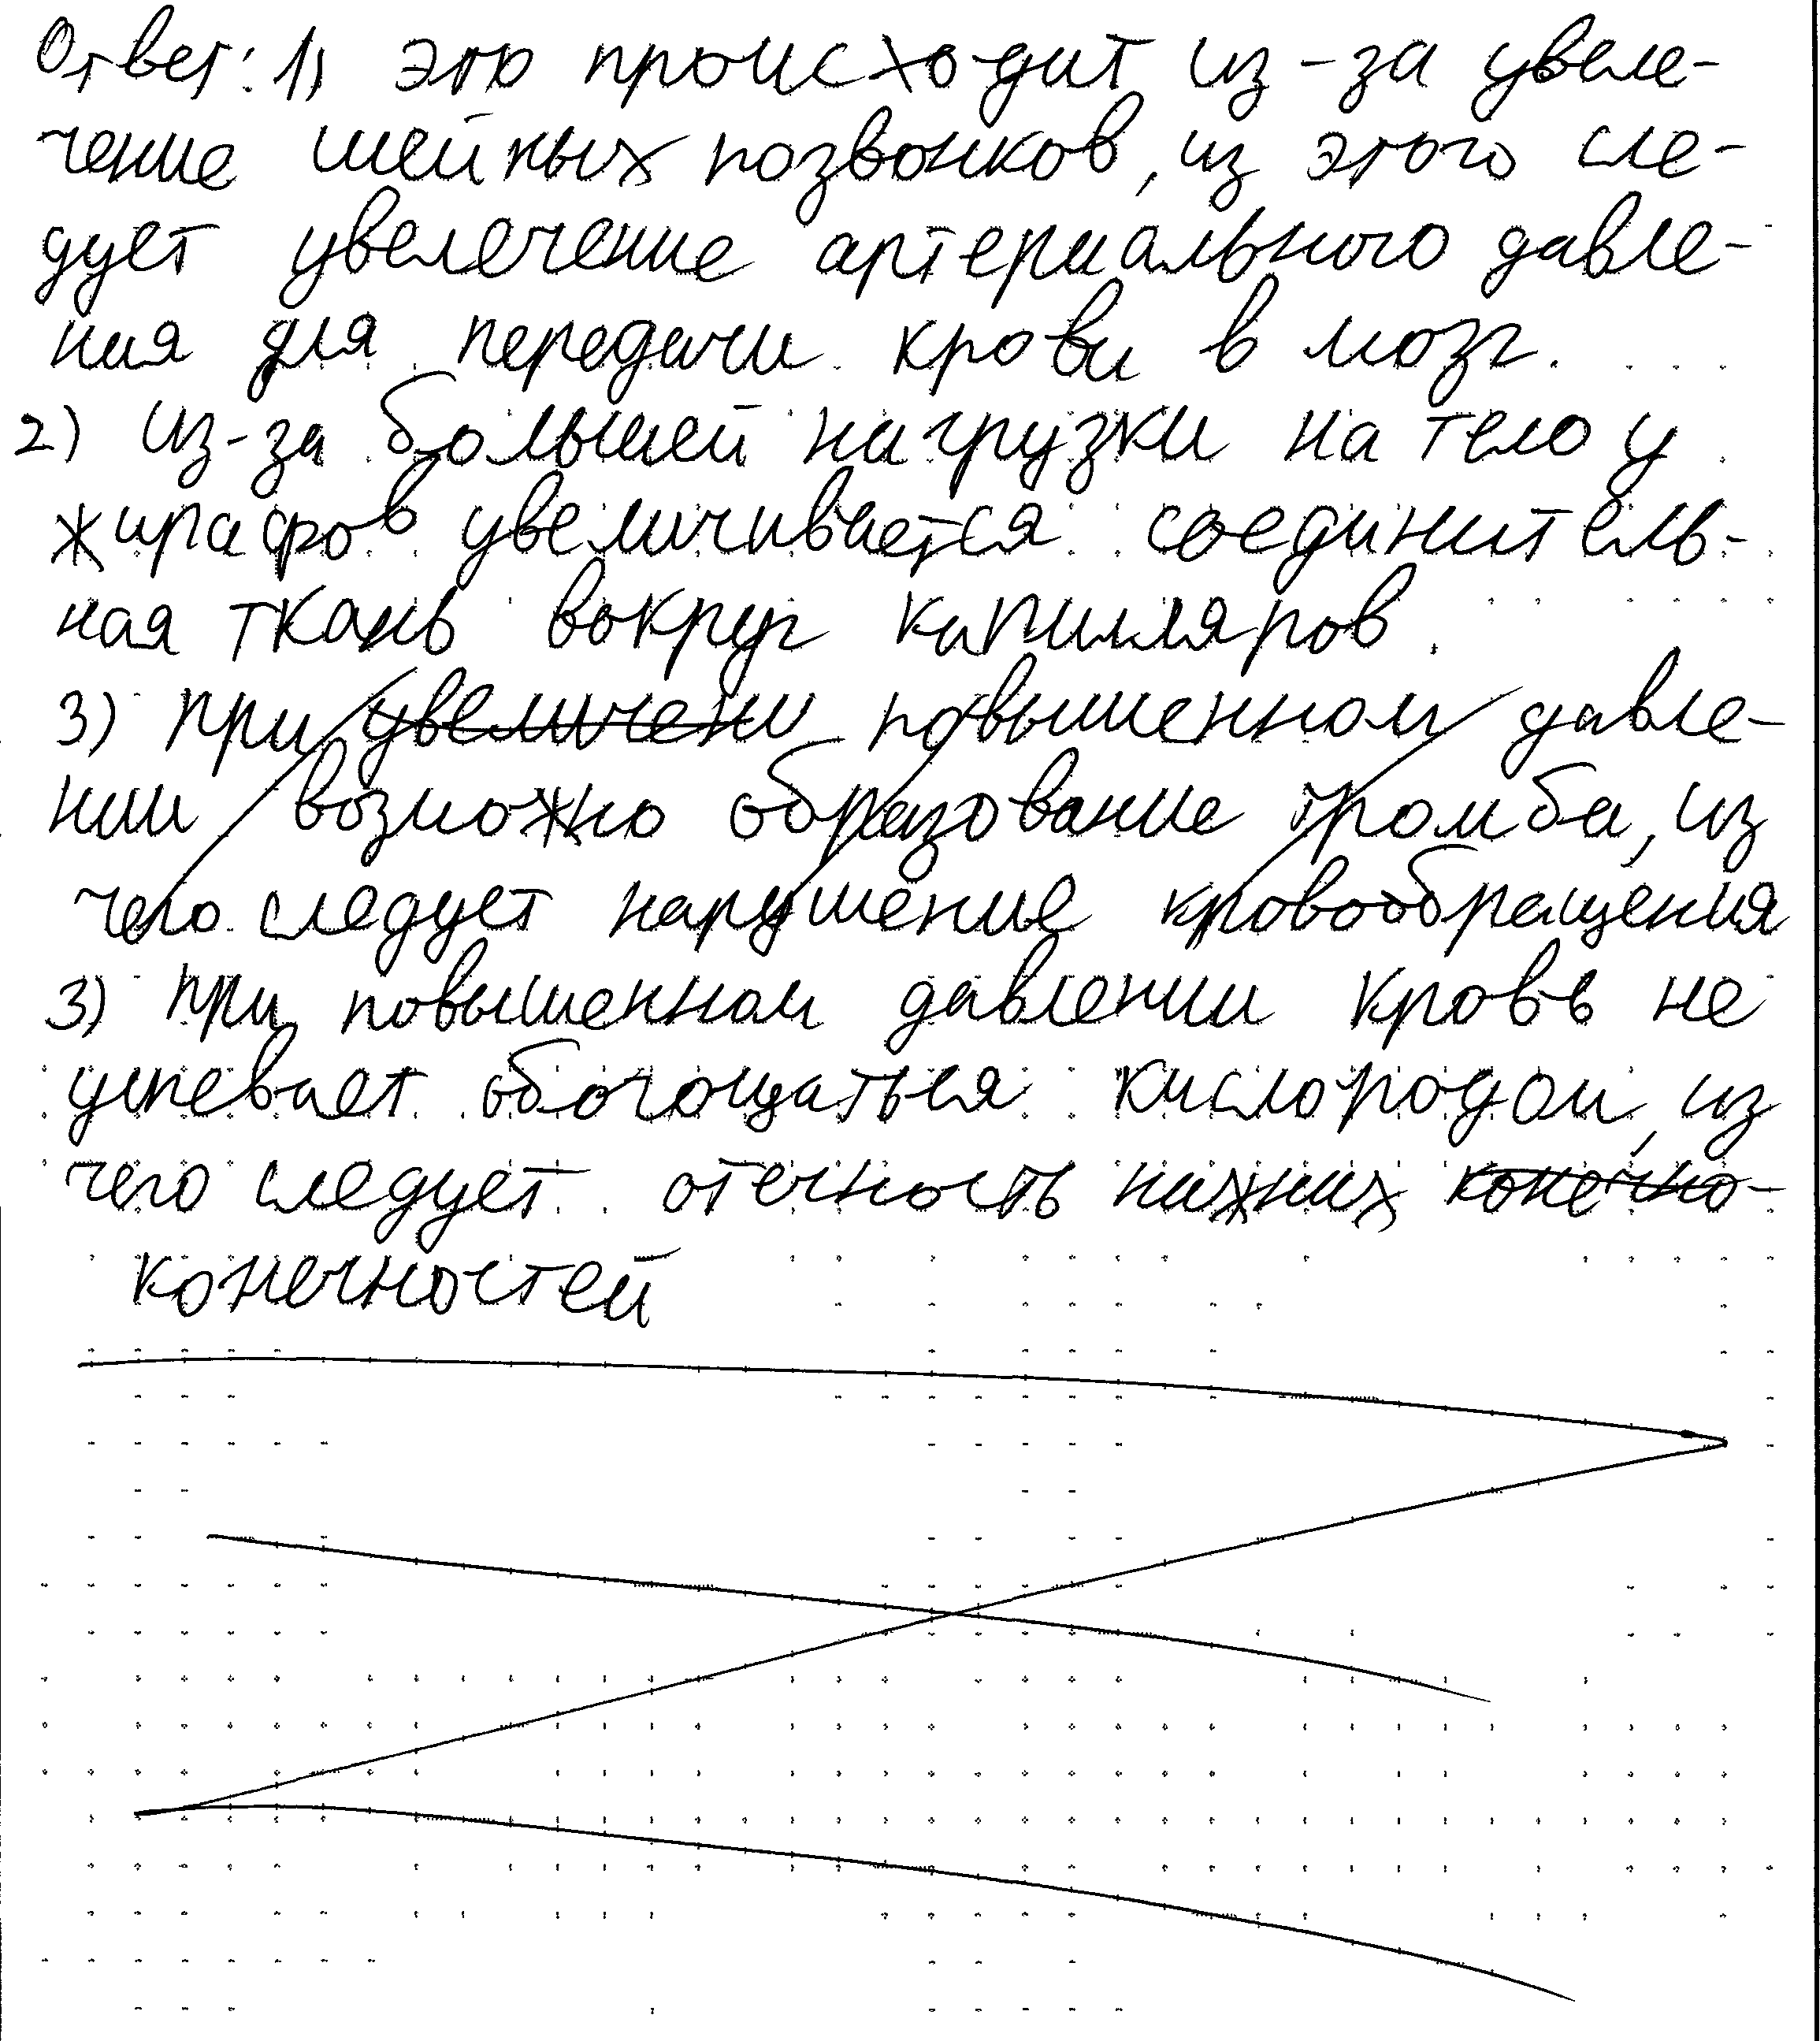 Ответ: 1) это происходит из-за увеле-
чение шейных позвонков, из этого сле-
дует увелечение артериального давле-
ния для передачи крови в мозг.
2) из-за большей нагрузки на тело у
жирафов увеличивается соединитель-
ная ткань вокруг капилляров.
3) при увеличени повышенном давле-
нии возможно образование тромба, из
чего следует нарушение кровообращения
3) при повышенном давлении кровь не
успевает обогощаться кислородом, из
чего следует отечность нижних конечно-
конечностей